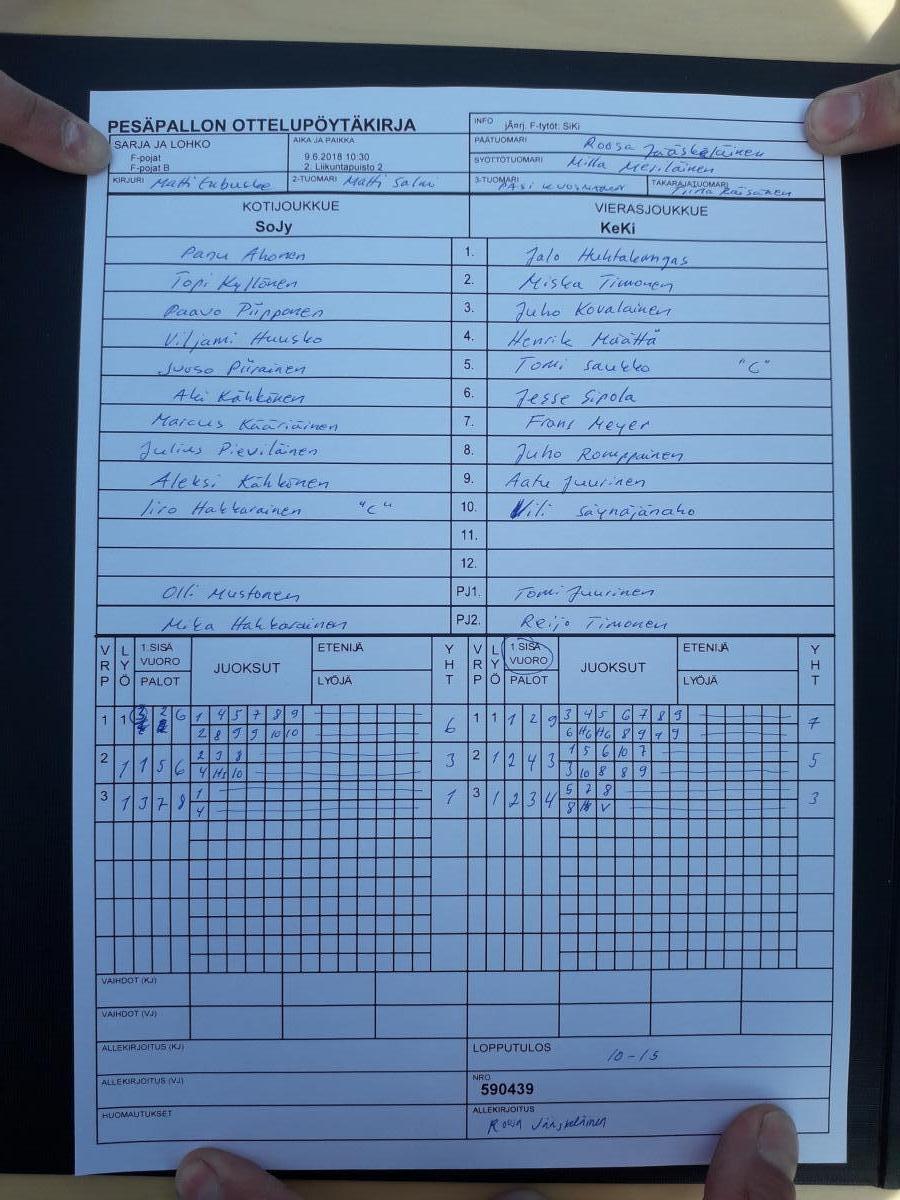 PESÄPALLON OTTELUPÖYTÄKIRJA
INFO jÄnrj. F-tytöt: SiKi
SARJA JA LOHKO
F-pojat
F-pojat B
AIKA JA PAIKKA
9.6.2018 10:30
2. Liikuntapuisto 2
PÄÄTUOMARI Roosa Jääskeläinen
SYÖTTÖTUOMARI Milla Meriläinen
KIRJURI Matti
2-TUOMARI Matti Salmi
3-TUOMARI
TAKARAJATUOMARI Tiina Räisänen
KOTIJOUKKUE VIERASJOUKKUE
SoJy KeKi
Panu Ahonen 1. Jalo Huhtakangas
Topi Kyllönen 2. Miska Timonen
Paavo Piipponen 3. Juho Kovalainen
Viljami Huusko 4. Henrik Määttä
Juuso Piirainen 5. Tomi Saukko "C"
Aki Kähkönen 6. Jesse Sipola
Marcus Kääriäinen 7. Frans Meyer
Julius Pieviläinen 8. Juho Romppainen
Aleksi Kähkönen 9. Aatu Juurinen
Iiro Hakkarainen "C" 10. Vili Säynäjänaho
11.
12.
Olli Mustonen PJ1. Tomi Juurinen
Mika Hakkarainen PJ2. Reijo Timonen
VRP LYÖ 1.SISÄ VUORO PALOT JUOKSUT ETENIJÄ LYÖJÄ YHT VRP LYÖ 1.SISÄ VUORO PALOT JUOKSUT ETENIJÄ LYÖJÄ YHT
1 1 3 2 6 1 4 5 7 8 9 6 1 1 1 2 9 3 4 5 6 7 8 9 7
2 8 9 9 10 10 6 H6 H6 8 9 9 9
2 1 1 5 6 2 3 8 3 2 1 2 4 3 1 5 6 10 7 5
4 H5 10 3 10 8 8 9
3 1 3 7 8 1 1 3 1 2 3 4 5 7 8 3
4 8 V
VAIHDOT (KJ)
VAIHDOT (VJ)
ALLEKIRJOITUS (KJ)
LOPPUTULOS 10-15
ALLEKIRJOITUS (VJ)
NRO
590439
HUOMAUTUKSET
ALLEKIRJOITUS
Roosa Jääskeläinen